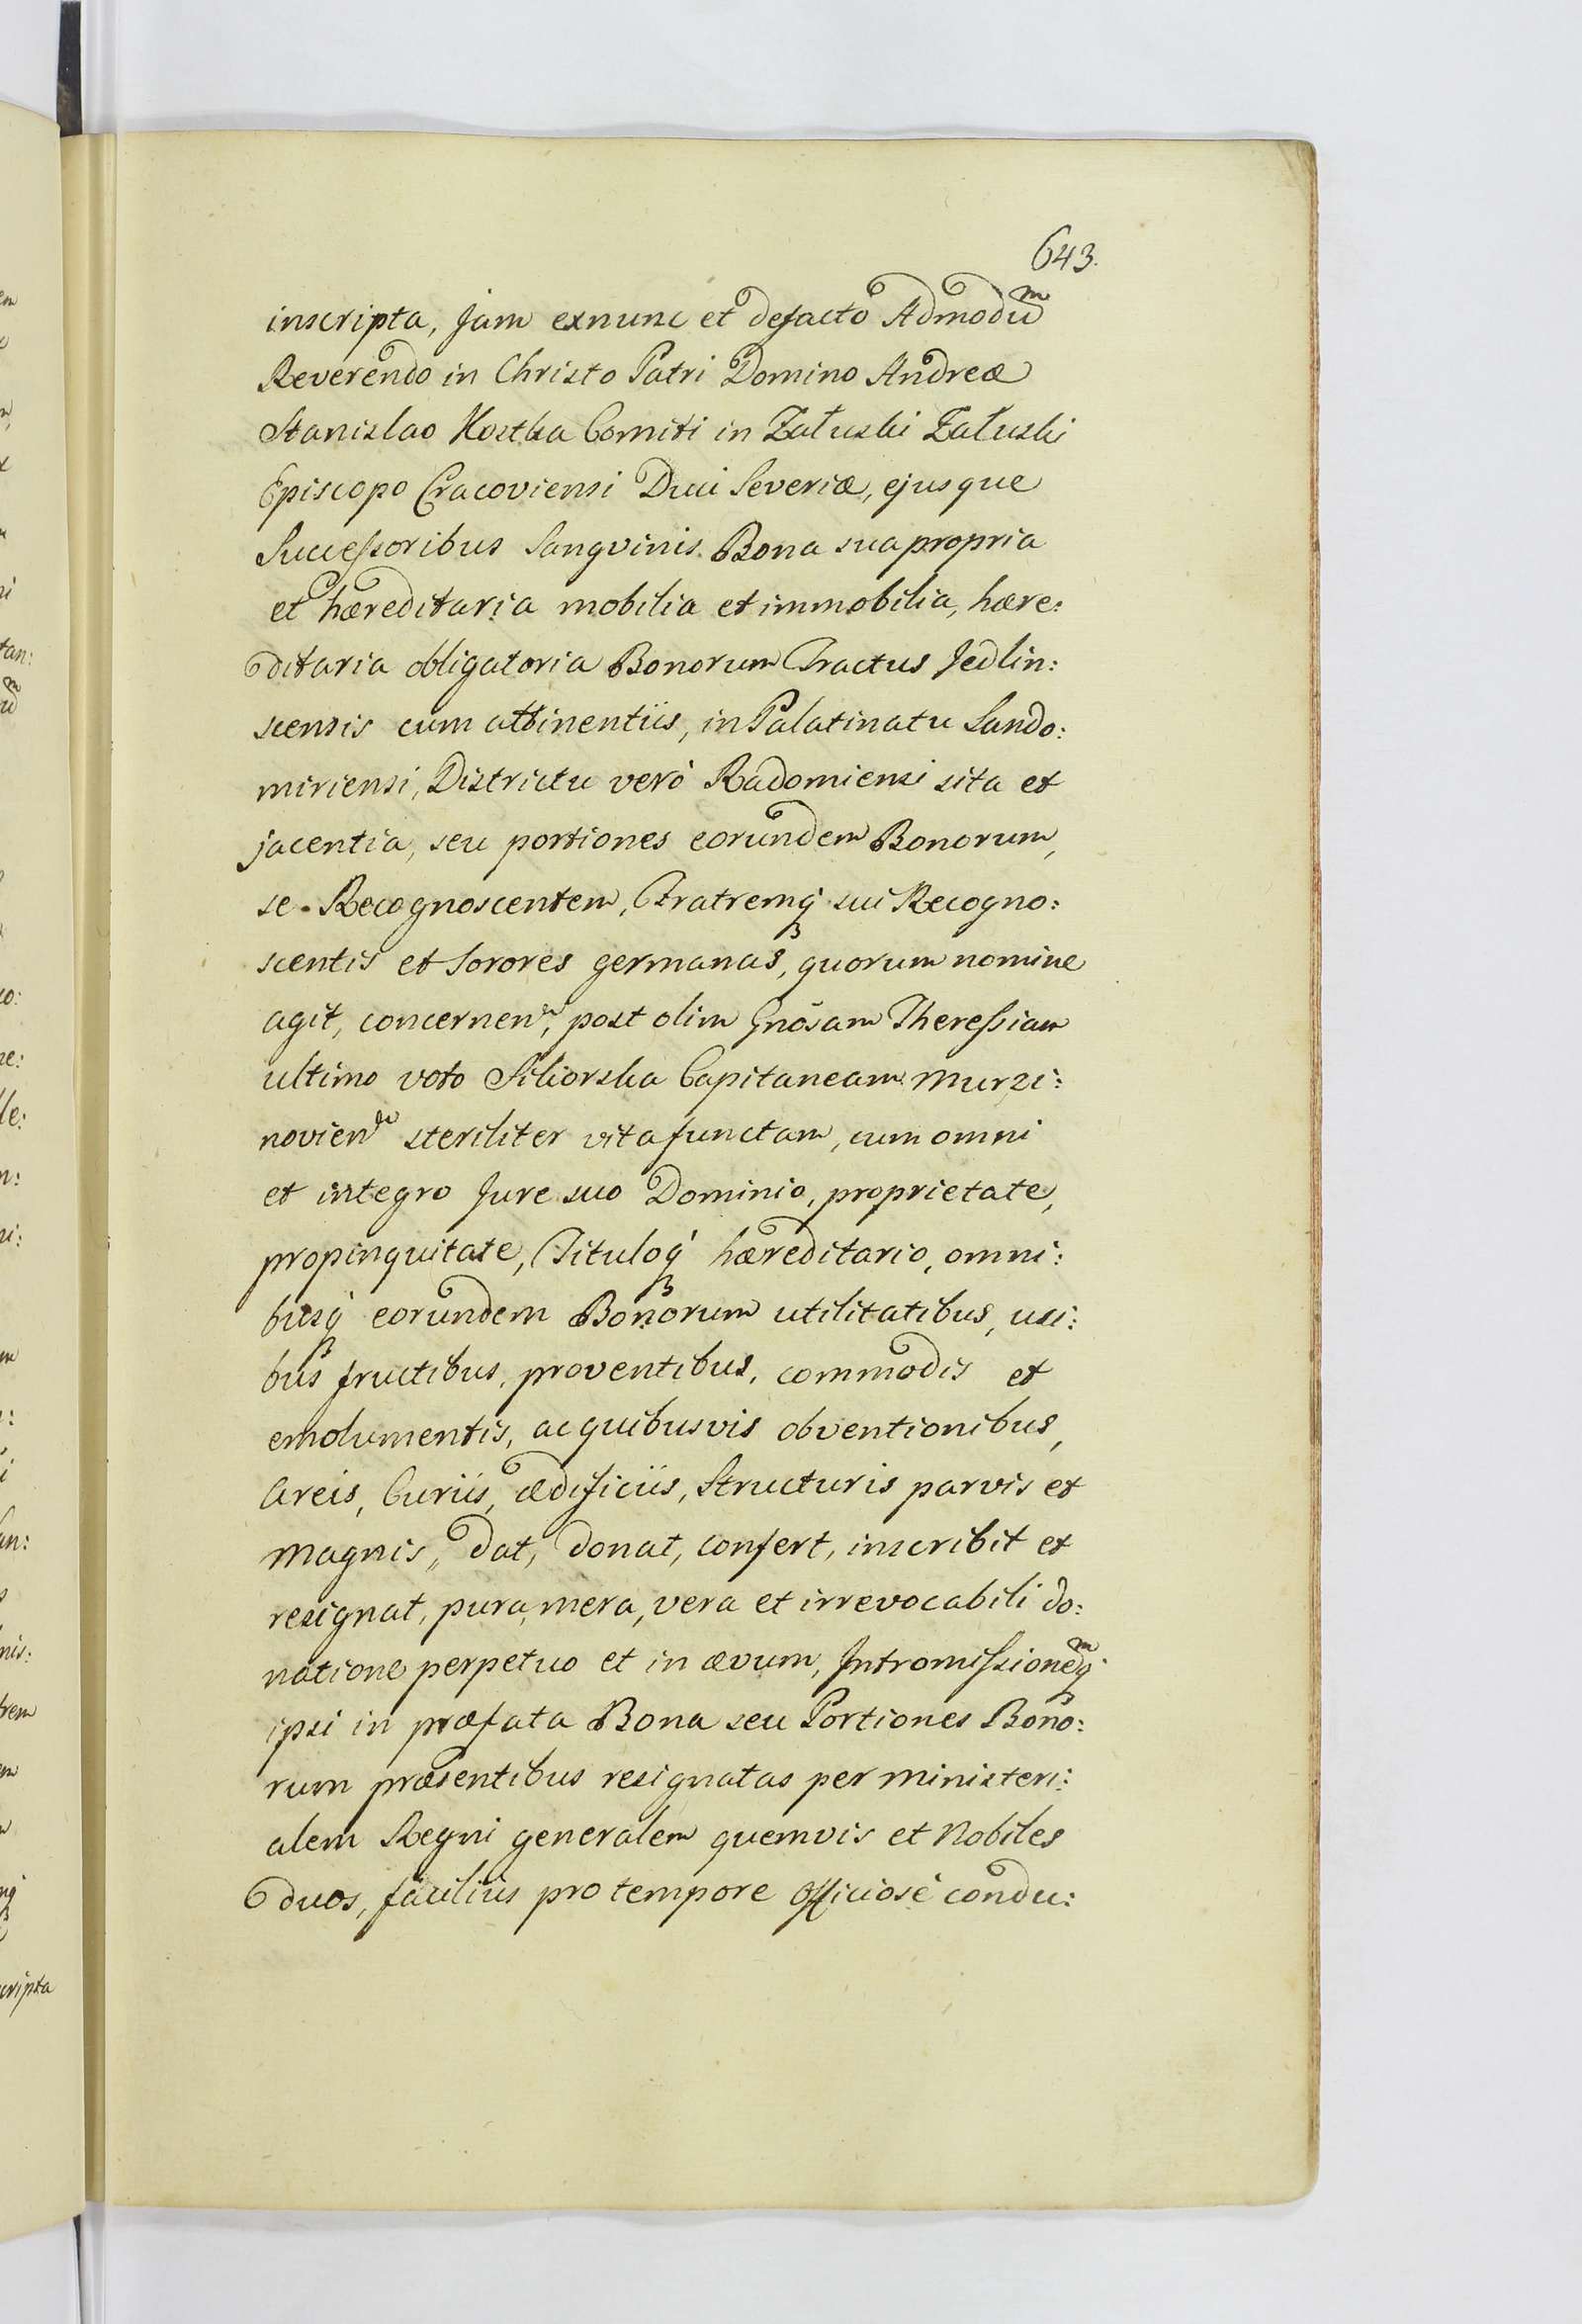 643.
inscripta, Jam exnunc et defacto Admodũ
Reverendo in Christo Patri Domino Andreæ
Stanislao Kostka Comiti in Załuski Załuski
Episcopo Cracoviensi Duci Severiæ, ejusque
Successoribus Sangvinis Bona sua propria
et hæreditaria mobilia et immobilia, hære:
ditaria obligatoria Bonorum Tractus Jedlin:
scensis cum attinentiis, in Palatinatu Sando:
miriensi, Districtu verò Radomiensi sita et
jacentia, seu portiones eorundem Bonorum,
se Recognoscentem, Fratremq́ sui Recogno:
scentis et Sorores germanas, quorum nomine
agit, concernen͂, post olim Gnõsam Theressiam
ultimo voto Sikorska Capitaneam Murzi:
novien͂ steriliter vita functam, cum omni
et integro Jure suo Dominio, proprietate,
propinquitate, Tituloq́ hæreditario, omni:
busq́ eorundem Bonorum utilitatibus, usi:
bus fructibus, proventibus, commodis et
emolumentis, ac quibusvis obventionibus,
Areis, Curiis, ædificiis, Structuris parvis et
magnis,, dat, donat, confert, inscribit et
resignat, pura, mera, vera et irrevocabili do:
natione perpetuo et in ævum, Intromissionẽq́
ipsi in præfata Bona seu Portiones Bono:
rum præsentibus resignatas per ministeri:
alem Regni generalem quemvis et Nobiles
duos, facilius pro tempore officiosè condu: